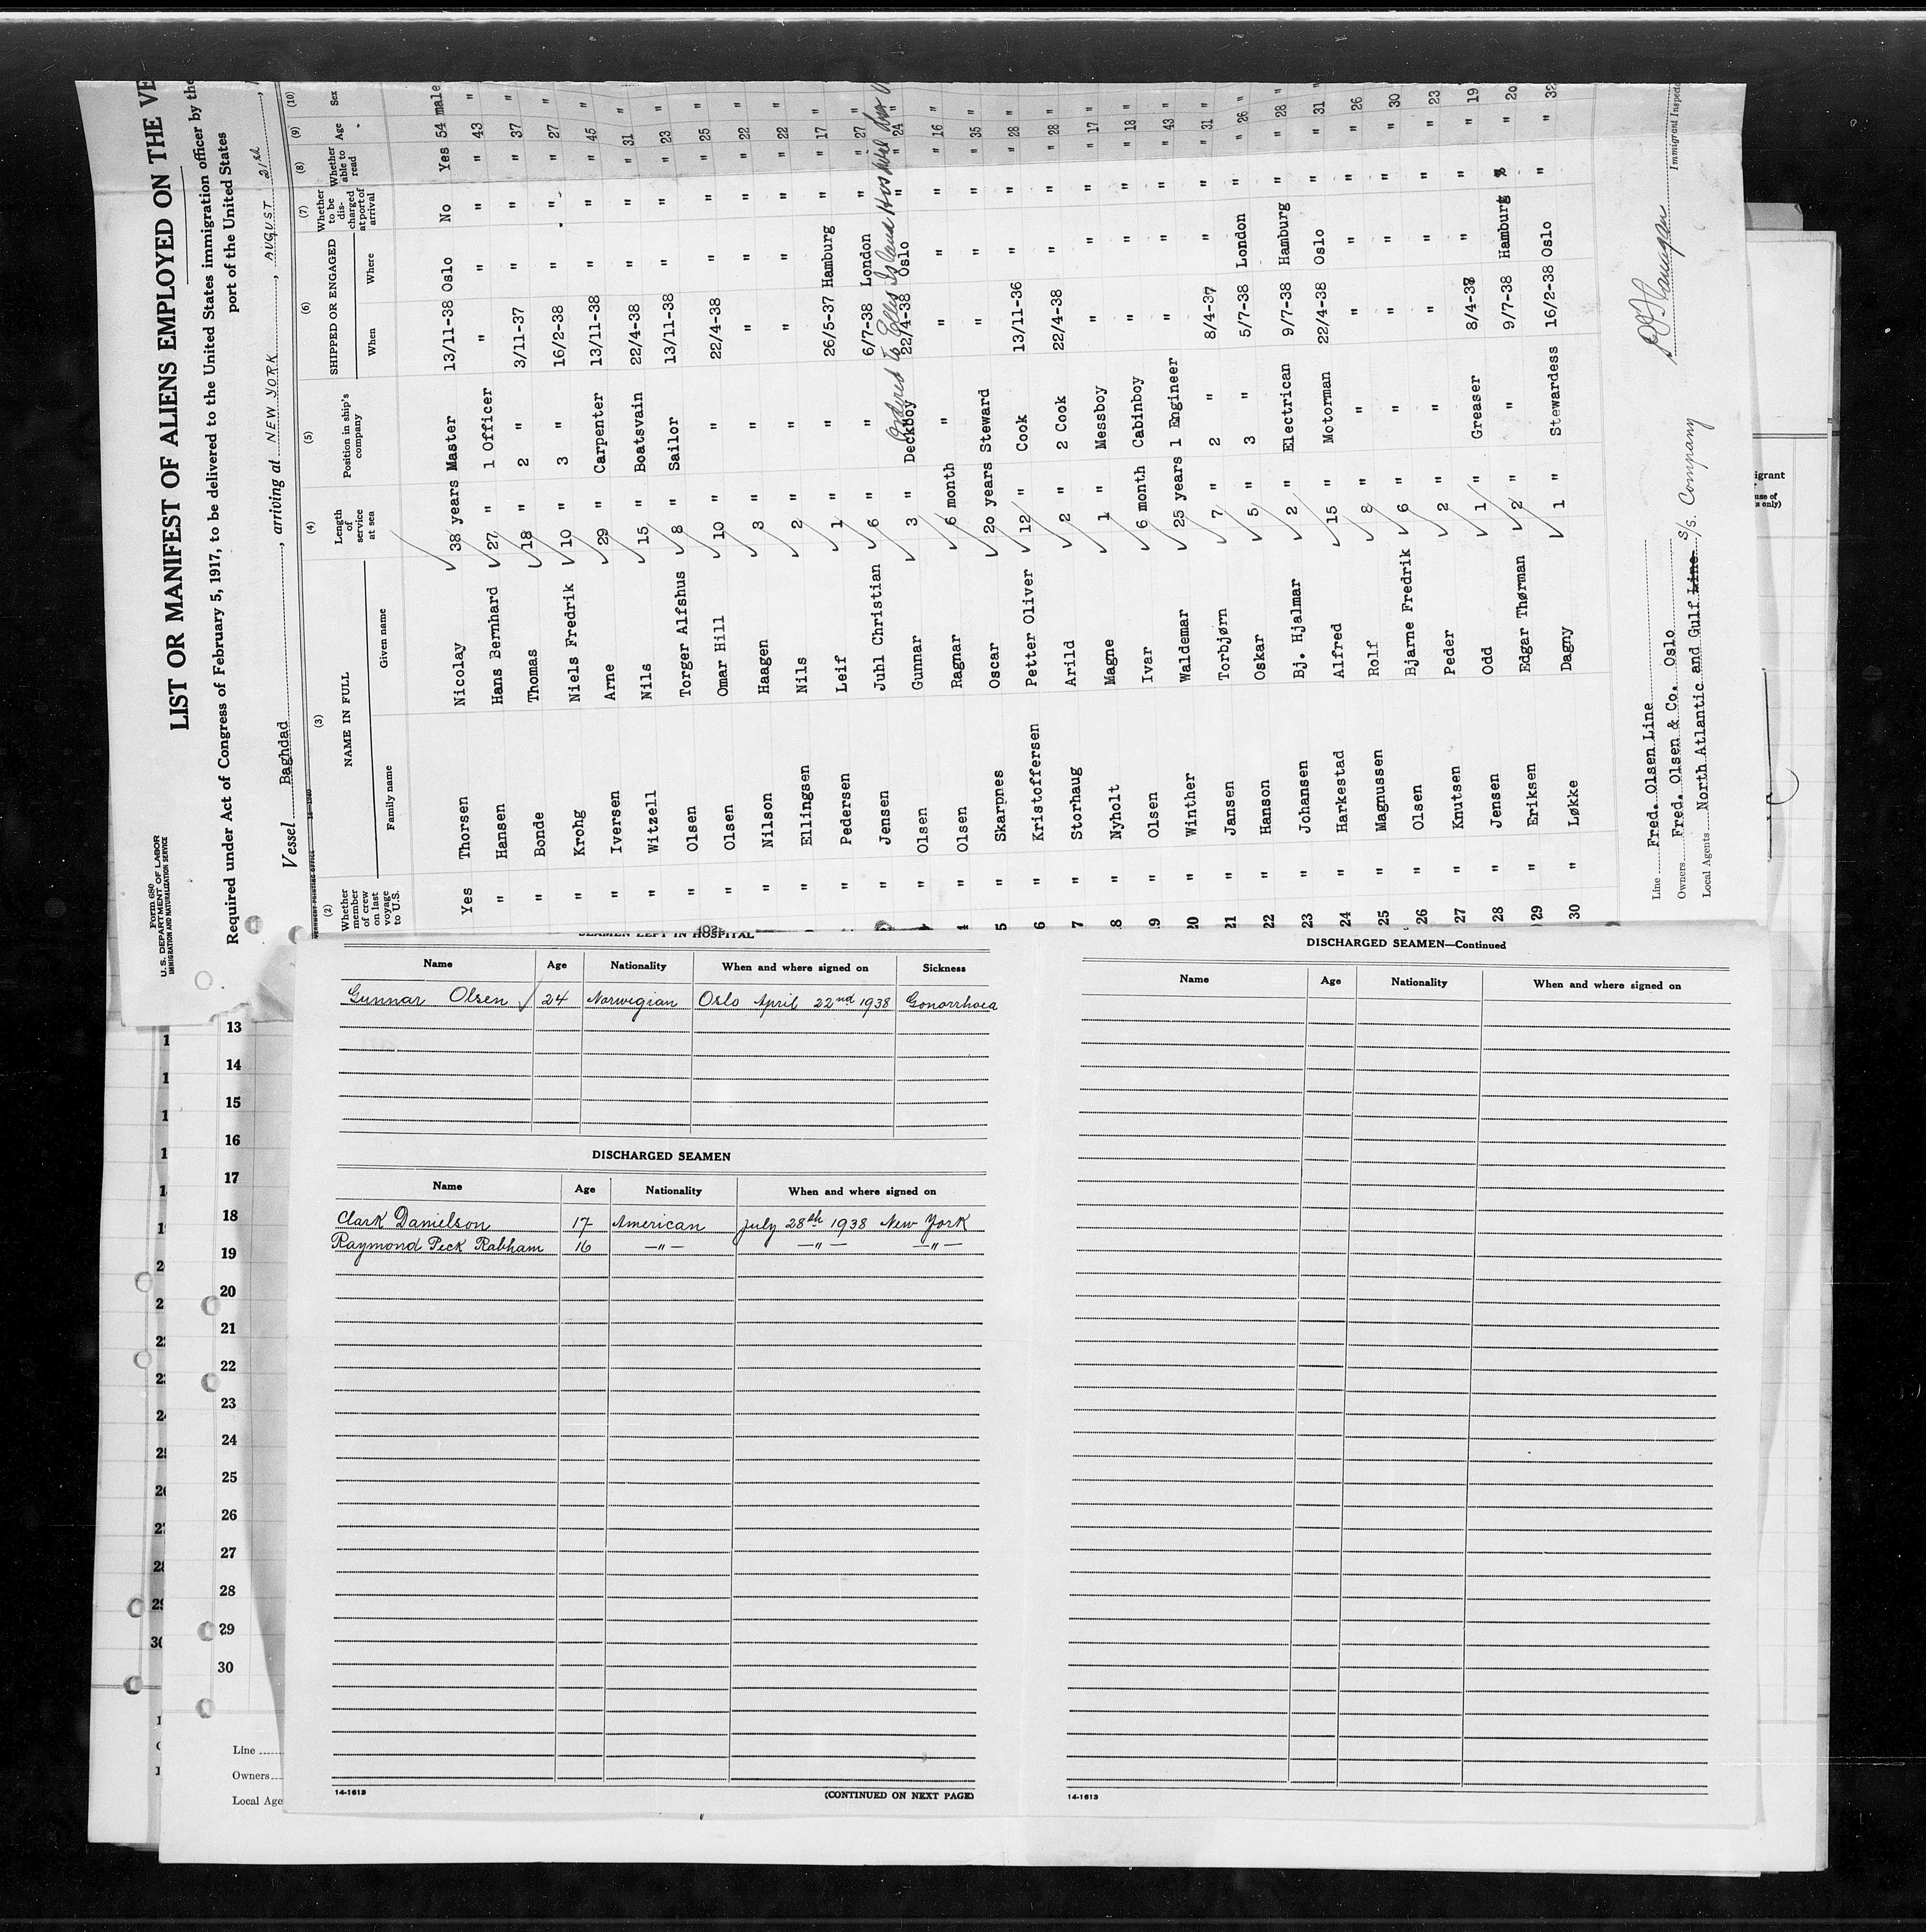 Form 680
U. S. DEPARTMENT OF LABOR
IMMIGRATION AND NATURALIZATION SERVICE
LIST OR MANIFEST OF ALIENS EMPLOYED ON THE VE
Required under Act of Congress of February 5, 1917, to be delivered to the United States immigration officer by the
port of the United States
Vessel Baghdad, arriving at NEW YORK, AUGUST 21st,
(2) (3) (4) (5) (6) (7) (8) (9) (10)
Whether member of crew on last voyage to U.S. NAME IN FULL Family name Given name Length of service at sea Position in ship's company SHIPPED OR ENGAGED When Where Whether to be discharged at port of arrival Whether able to read Age Sex
Yes Thorsen Nicolay 38 years Master 13/11-38 Oslo No Yes 54 male
" Hansen Hans Bernhard 27 " 1 Officer " " " " 43 "
" Bonde Thomas 18 " 2 " 3/11-37 " " " 37 "
" Krohg Niels Fredrik 10 " 3 " 16/2-38 " " " 27 "
" Iversen Arne 29 " Carpenter 13/11-38 " " " 45 "
" Witzell Nils 15 " Boatsvain 22/4-38 " " " 31 "
" Olsen Torger Alfshus 8 " Sailor 13/11-38 " " " 23 "
" Olsen Omar Hill 10 " " 22/4-38 " " " 25 "
" Nilson Haagen 3 " " " " " " 22 "
" Ellingsen Nils 2 " " " " " " 22 "
" Pedersen Leif 1 " " 26/5-37 Hamburg " " 17 "
" Jensen Juhl Christian 6 " " 6/7-38 London " " 27 "
" Olsen Gunnar 3 " Deckboy 22/4-38 Oslo " " 24 "
Ordered to Ellis Island Hospital
" Olsen Ragnar 6 month " " " " " 16 "
5 " Skarpnes Oscar 20 years Steward " " " " 35 "
6 " Kristoffersen Petter Oliver 12 " Cook 13/11-36 " " " 28 "
7 " Storhaug Arild 2 " 2 Cook 22/4-38 " " " 28 "
8 " Nyholt Magne 1 " Messboy " " " " 17 "
19 " Olsen Ivar 6 month Cabinboy " " " " 18 "
20 " Winther Waldemar 25 years 1 Engineer " " " " 43 "
21 " Jansen Torbjørn 7 " 2 " 8/4-37 " " " 31 "
22 " Hanson Oskar 5 " 3 " 5/7-38 London " " 26 "
23 " Johansen Bj. Hjalmar 2 " Electrican 9/7-38 Hamburg " " 28 "
24 " Harkestad Alfred 15 " Motorman 22/4-38 Oslo " " 31 "
25 " Magnussen Rolf 8 " " " " " " 26
26 " Olsen Bjarne Fredrik 6 " " " " " " 30
27 " Knutsen Peder 2 " " " " " " 23
28 " Jensen Odd 1 " Greaser 8/4-38 " " " 19
29 " Eriksen Edgar Thørman 2 " " 9/7-38 Hamburg " " 20
30 " Løkke Dagny 1 " Stewardess 16/2-38 Oslo " " 32
Line Fred. Olsen Line
Owners Fred. Olsen & Co. Oslo
Local Agents North Atlantic and Gulf Line S/s. Company
Immigrant Inspec
SEAMEN LEFT IN HOSPITAL
Name Age Nationality When and where signed on Sickness
Gunnar Olsen 24 Norwegian Oslo April 22nd 1938 Gonorrhoea
DISCHARGED SEAMEN
Name Age Nationality When and where signed on
Clark Danielson 17 American July 28th 1938 New York
Raymond Peck Rabham 16 —"— —"— —"—
14-1613
(CONTINUED ON NEXT PAGE)
DISCHARGED SEAMEN—Continued
Name Age Nationality When and where signed on
14-1613
13
14
15
16
17
18
19
20
21
22
23
24
25
26
27
28
29
30
Line
Owners
Local Age